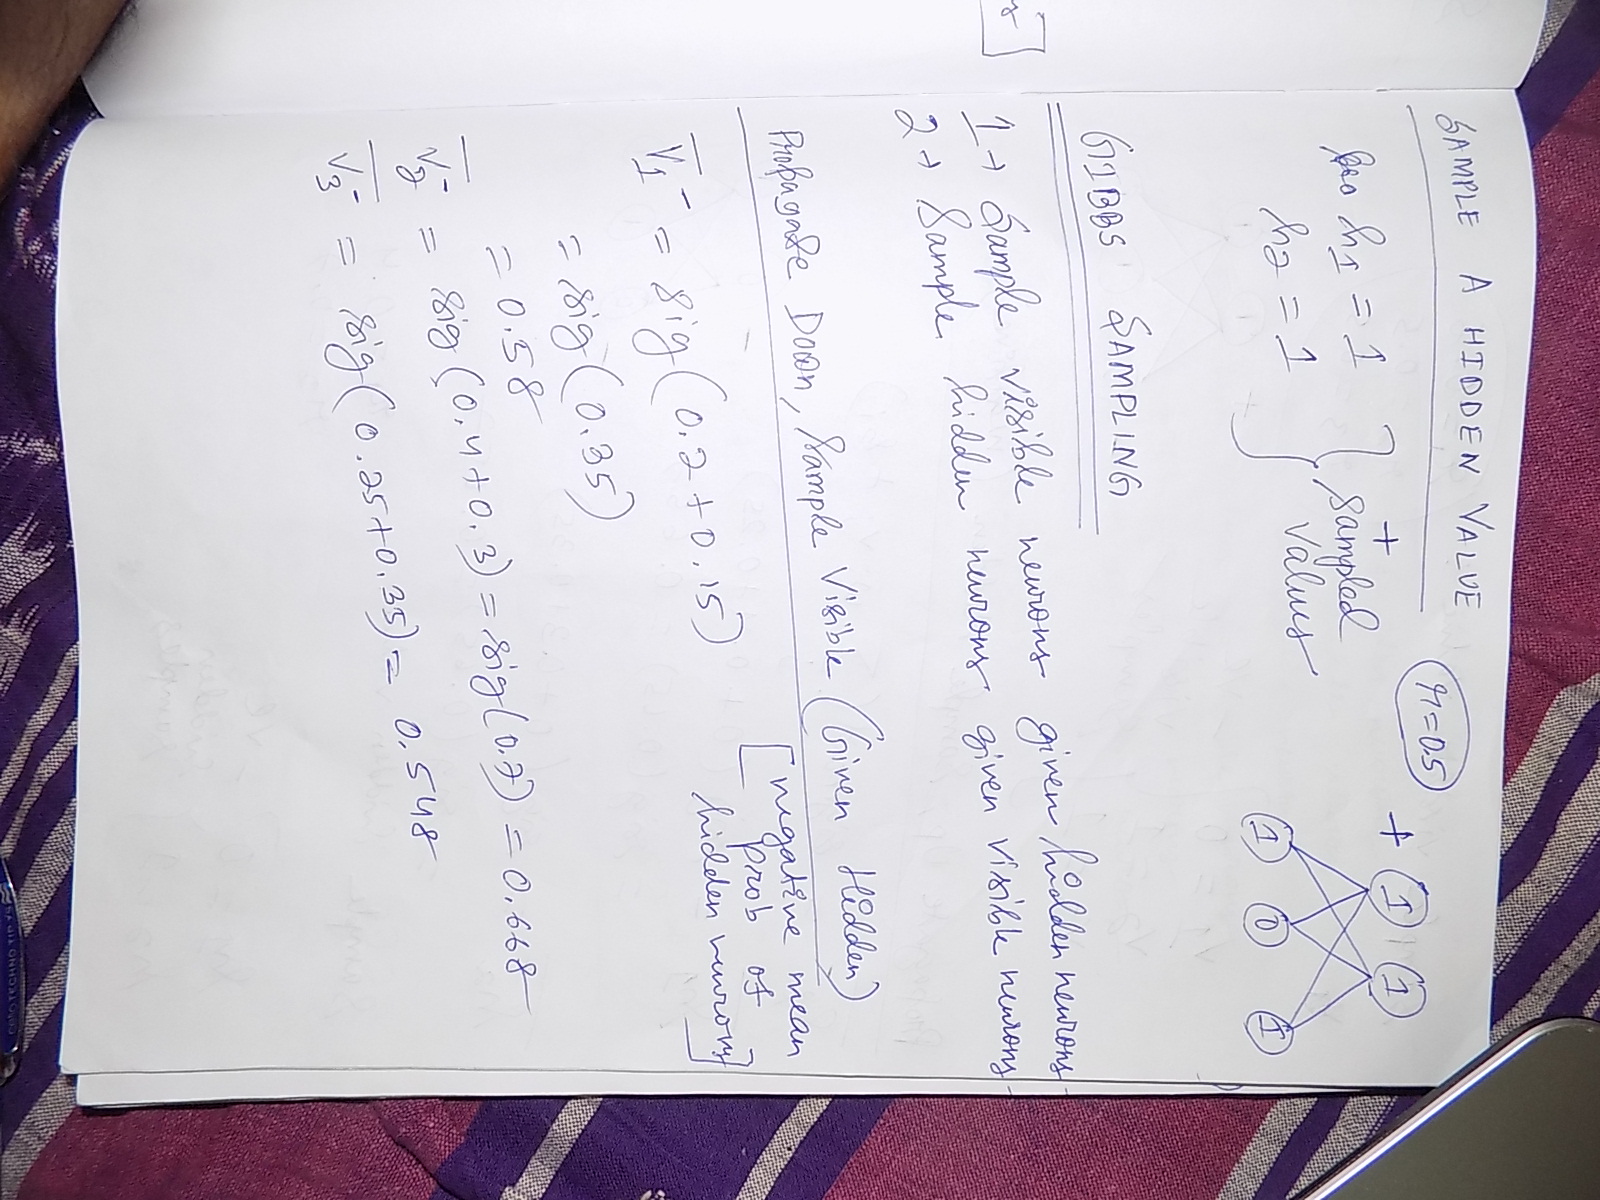 SAMPLE A HIDDEN VALUE
r = 0.5
h1 = 1
h2 = 1
+
Sampled
Values
+ 1 1
1 0 1
GIBBS SAMPLING
1 → Sample visible neurons given hidden neurons
2 → Sample hidden neurons given visible neurons
Propagate Down, Sample Visible (Given Hidden)
[negative mean
prob of
hidden neurons]
V1⁻ = sig(0.2+0.15)
= sig(0.35)
= 0.58
V2⁻ = sig(0.4+0.3) = sig(0.7) = 0.668
V3⁻ = sig(0.25+0.35) = 0.548